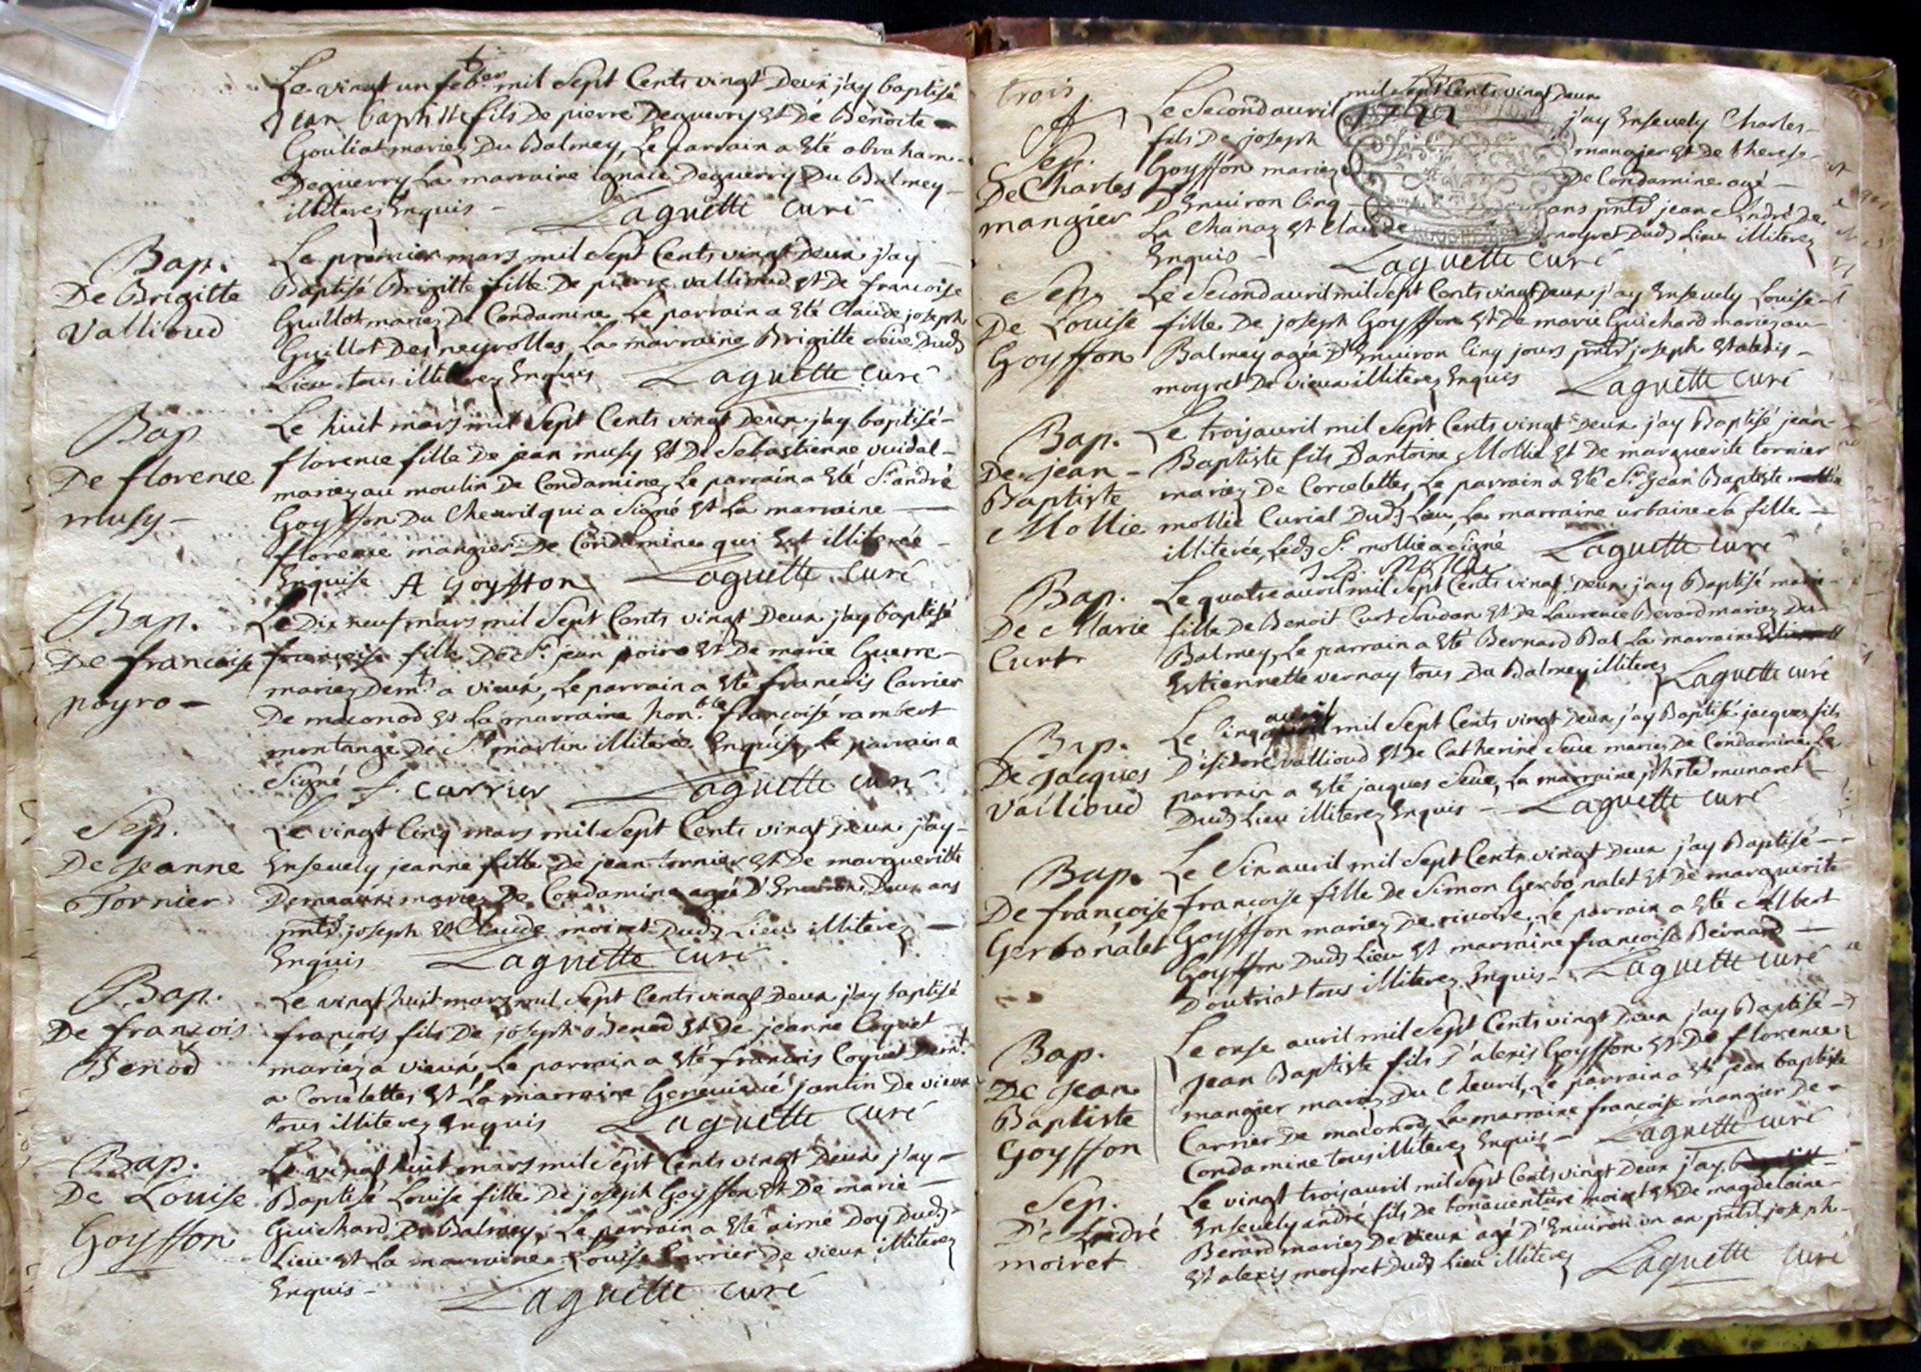 Le vingt un feb.er mil Sept Cents vingt Deux j'ay baptisé
Jean baptiste fils De pierre Deguerry Et De Benoite
Gouliat mariez Du Balmey, Le parrain a Eté abraham
Deguerry La marraine Deguerry Du Balmey
illiterez Enquis Laguette curé
Bap.
De Brigitte
Vallioud
Le premier mars mil Sept Cents vingt Deux j'ay
Baptisé Brigitte fille De pierre vallioud Et De francoise
Guillot mariez De Condamine, Le parrain a Eté Claude joseph
Guillot Des neyrolles, La marraine Brigitte seve Dud
Lieu tous illiterez Enquis Laguette curé
Bap
De florence
musy
Le huit mars mil Sept Cents vingt Deux j'ay baptisé
florence fille De jean musy Et De Sebastienne vuidal
mariez au moulin De Condamine, Le parrain a Eté Sr. andré
Goyffon Du Cheuril qui a Signé Et La marraine
florence mangier De Condamine qui Est illiterée
Enquise A Goyffon Laguette curé
Bap.
De francoise
poyro
Le Dix neuf mars mil Sept Cents vingt Deux j'ay baptisé
francoise fille De Sr. jean poiro Et De marie Guerre
mariez Demts a vieux, Le parrain a Eté francois Carrier
De maconod Et La marraine hon.ble francoise rambert
montange De St martin illiterée Enquise, Le parrain a
Signé f. carrier Laguette curé
Sep.
De Jeanne
Tornier
Le vingt Cinq mars mil Sept Cents vingt Deux j'ay
Ensevely jeanne fille De jean tornier Et De marguerite
mariez De Condamine agée D'Environ Deux ans
pnts joseph Et Claude moiret Dud Lieu illiterez
Enquis Laguette curé
Bap.
De francois
Benod
Le vingt huit mars mil Sept Cents vingt Deux j'ay baptisé
francois fils De joseph Benod Et De jeanne Coquet
mariez a vieux, Le parrain a Eté francois Coquet Demt
a Corcelettes Et La marraine Genevieve jantin De vieux
tous illiterez Enquis Laguette curé
Bap.
De Louise
Goyffon
Le vingt huit mars mil Sept Cents vingt Deux j'ay
Baptisé Louise fille De joseph Goyffon Et De marie
Guichard De Balmey, Le parrain a Eté aimé Doy Dud
Lieu Et La marraine Louise Carrier De vieux illiterez
Enquis Laguette curé
trois
Sep.
De Charles
mangier
mil Sept Cents vingt Deux
Le Second auril j'ay Ensevely Charles
fils De joseph mangier Et De therese
Goyffon mariez De Condamine agé
D'Environ Cinq ans pnts jean André De
La Chanaz Et Claude moyret Dud Lieu illiterez
Enquis Laguette curé
Sep.
De Louise
Goyffon
Le Second auril mil Sept Cents vingt Deux j'ay Ensevely Louise
fille De joseph Goyffon Et De marie Guichard mariez au
Balmey agée D'Environ Cinq jours pnts joseph Et alexis
moyret De vieux illiterez Enquis Laguette curé
Bap.
De jean
Baptiste
Mollie
Le trois auril mil Sept Cents vingt Deux j'ay Baptisé jean
Baptiste fils D'antoine Mollie Et De marguerite tornier
mariez De Corcelettes, Le parrain a Eté Sr. Jean Baptiste
mollie Curial Dud Lieu, La marraine urbaine sa fille
illiterée, Led Sr. mollie a Signé Laguette curé
Bap.
De Marie
Curt
Le quatre auril mil Sept Cents vingt Deux j'ay Baptisé marie
fille De Benoit Curt Soudan Et De Laurence Berard mariez Du
Balmey, Le parrain a Eté Bernard Bal La marraine
Estiennette vernay tous Du Balmey illiterez Laguette curé
Bap.
De Jacques
Vallioud
auril
Le Cinq mil Sept Cents vingt Deux j'ay Baptisé jacques fils
D'isidore vallioud Et De Catherine Seve mariez De Condamine, Le
parrain a Eté jacques Seve, La marraine munaret
Dud Lieu illiterez Enquis Laguette curé
Bap.
De françoise
Gerbonalet
Le Six auril mil Sept Cents vingt Deux j'ay Baptisé
francoise fille De Simon Gerbonalet Et De marguerite
Goyffon mariez De rivoire, Le parrain a Eté Albert
Goyffon Dud Lieu Et marraine francoise Bernard
D'outriat tous illiterez Enquis Laguette curé
Bap.
De Jean
Baptiste
Goyffon
Le onse auril mil Sept Cents vingt Deux j'ay Baptisé
Jean Baptiste fils D'alexis Goyffon Et De florence
mangier mariez Du Cheuril, Le parrain a Eté jean baptiste
Carrier De maconod, La marraine francoise mangier De
Condamine tous illiterez Enquis Laguette curé
Sep.
De André
moiret
Le vingt trois auril mil Sept Cents vingt Deux j'ay
Ensevely andré fils De bonaventure moiret Et De magdelaine
Berard mariez De vieux agé D'Environ un an pnts joseph
Et alexis moyret Dud Lieu illiterez Laguette curé